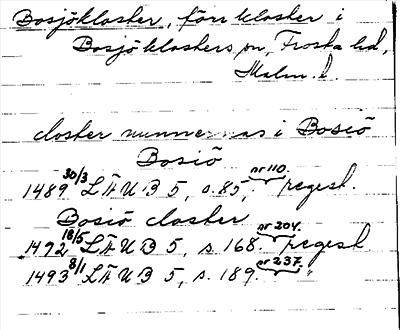 Bosjökloster, förr kloster i
Bosjöklosters sn, Frosta hd,
Malm. l.
closter nunnernas i Bosiö
Bosiö
1489 30/3 LÄUB 5, s. 85, nr 110. regest.
Bosiö closter
1492 16/5 LÄUB 5, s. 168. nr 204. regest
1493 8/1 LÄUB 5, s. 189. nr 237. "